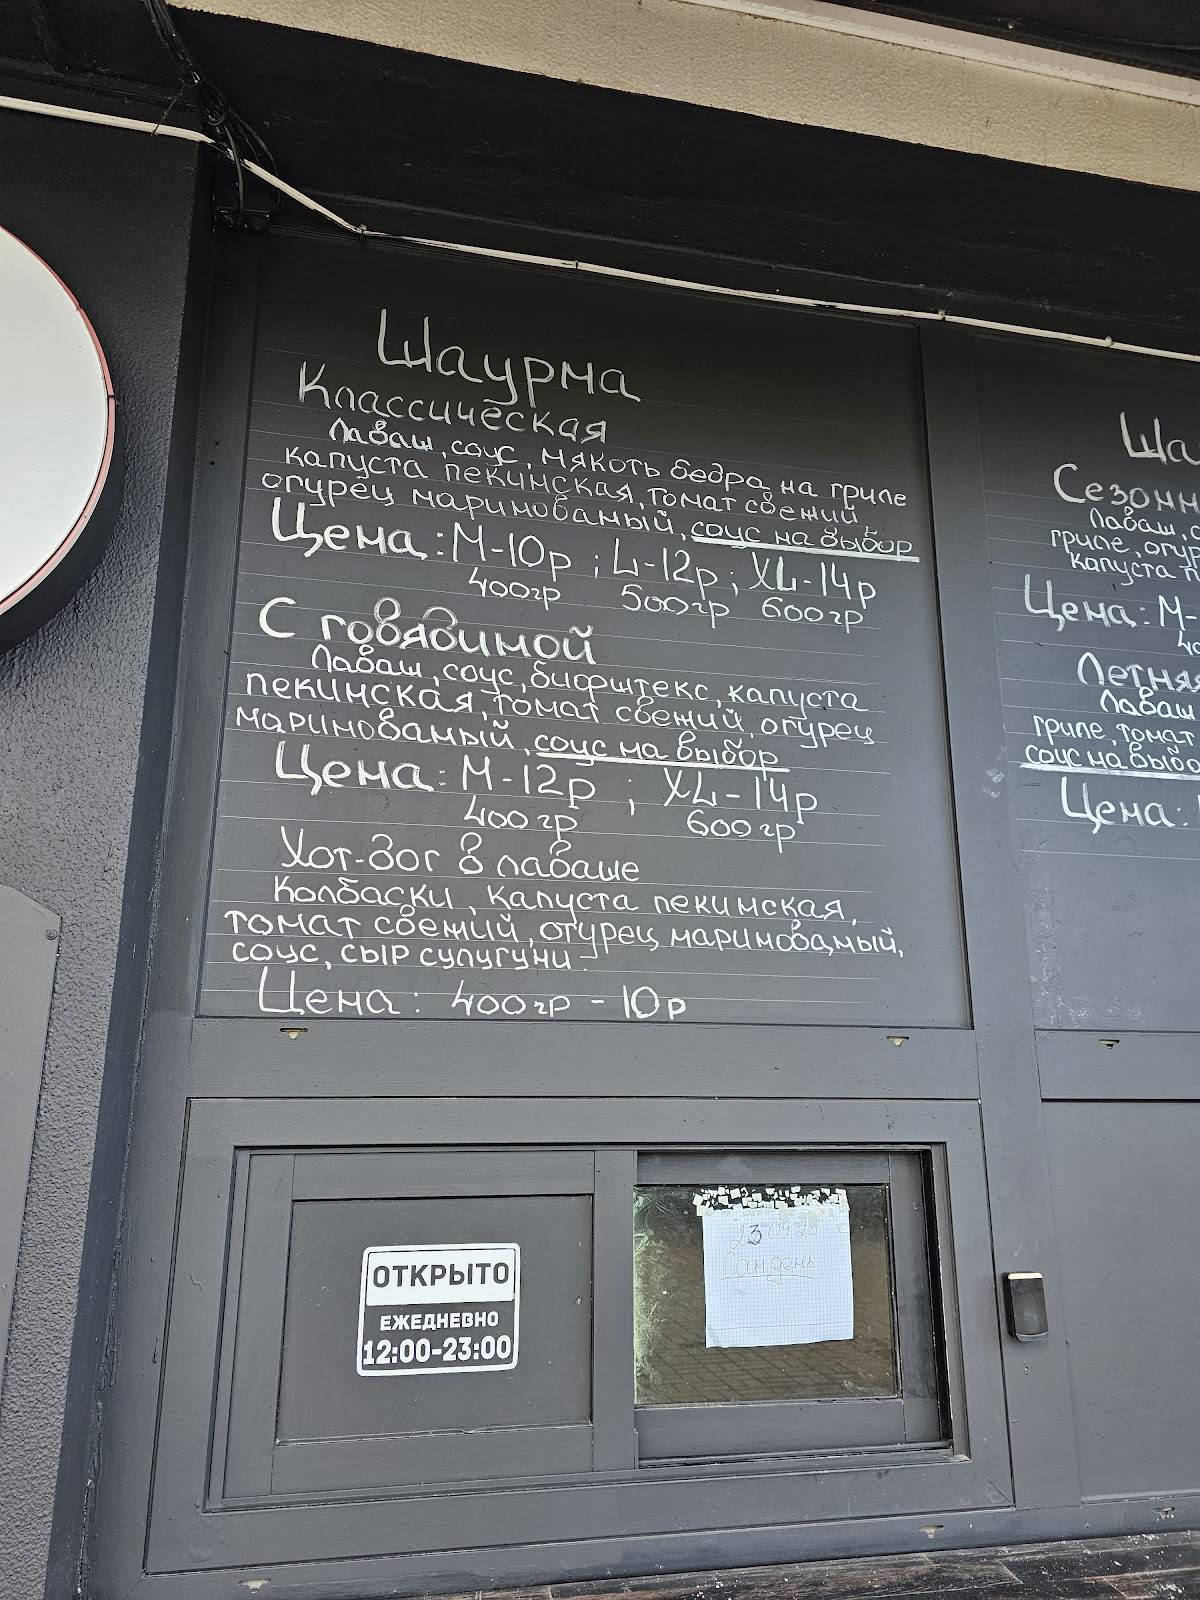 Шаурма
Классическая
Лаваш, соус, мякоть бедра на гриле
капуста пекинская, томат свежий
огурец маринованый, соус на выбор
Цена: М-10р ; L-12р ; XL-14р
400гр 500гр 600гр
С говядиной
Лаваш, соус, бифштекс, капуста
пекинская, томат свежий, огурец
маринованый, соус на выбор
Цена: М-12р ; XL-14р
400гр 600гр
Хот-дог в лаваше
Колбаски, капуста пекинская,
томат свежий, огурец маринованый,
соус, сыр сулугуни
Цена: 400гр - 10р
Ша
Сезонн
Лаваш, с
гриле, огур
капуста п
Цена: М-
40
Летняя
Лаваш
гриле, томат
соус на выбо
Цена:
ОТКРЫТО
ЕЖЕДНЕВНО
12:00-23:00
Сан день